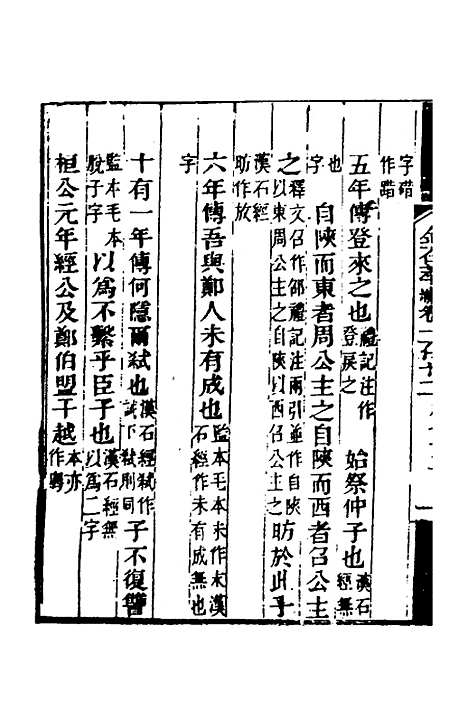 字 碏作踖
五年傳登來之也 禮記注作登戾之 始祭仲子也 漢石經無
也字 自陝而東者周公主之自陝而西者召公主
之 釋文召作邵禮記注兩引並作自陝以東周公主之自陝以西召公主之 昉於此乎
漢石經昉作放
六年傳吾與鄭人未有成也 監本毛本末作未漢石經作未有成無也
字
十有一年傳何隱爾弑也 漢石經弑作試下弑則同 子不復讐
監本毛本脫子字 以爲不繫乎臣子也 漢石經無以爲二字
桓公元年經公及鄭伯盟于越 本亦作粵